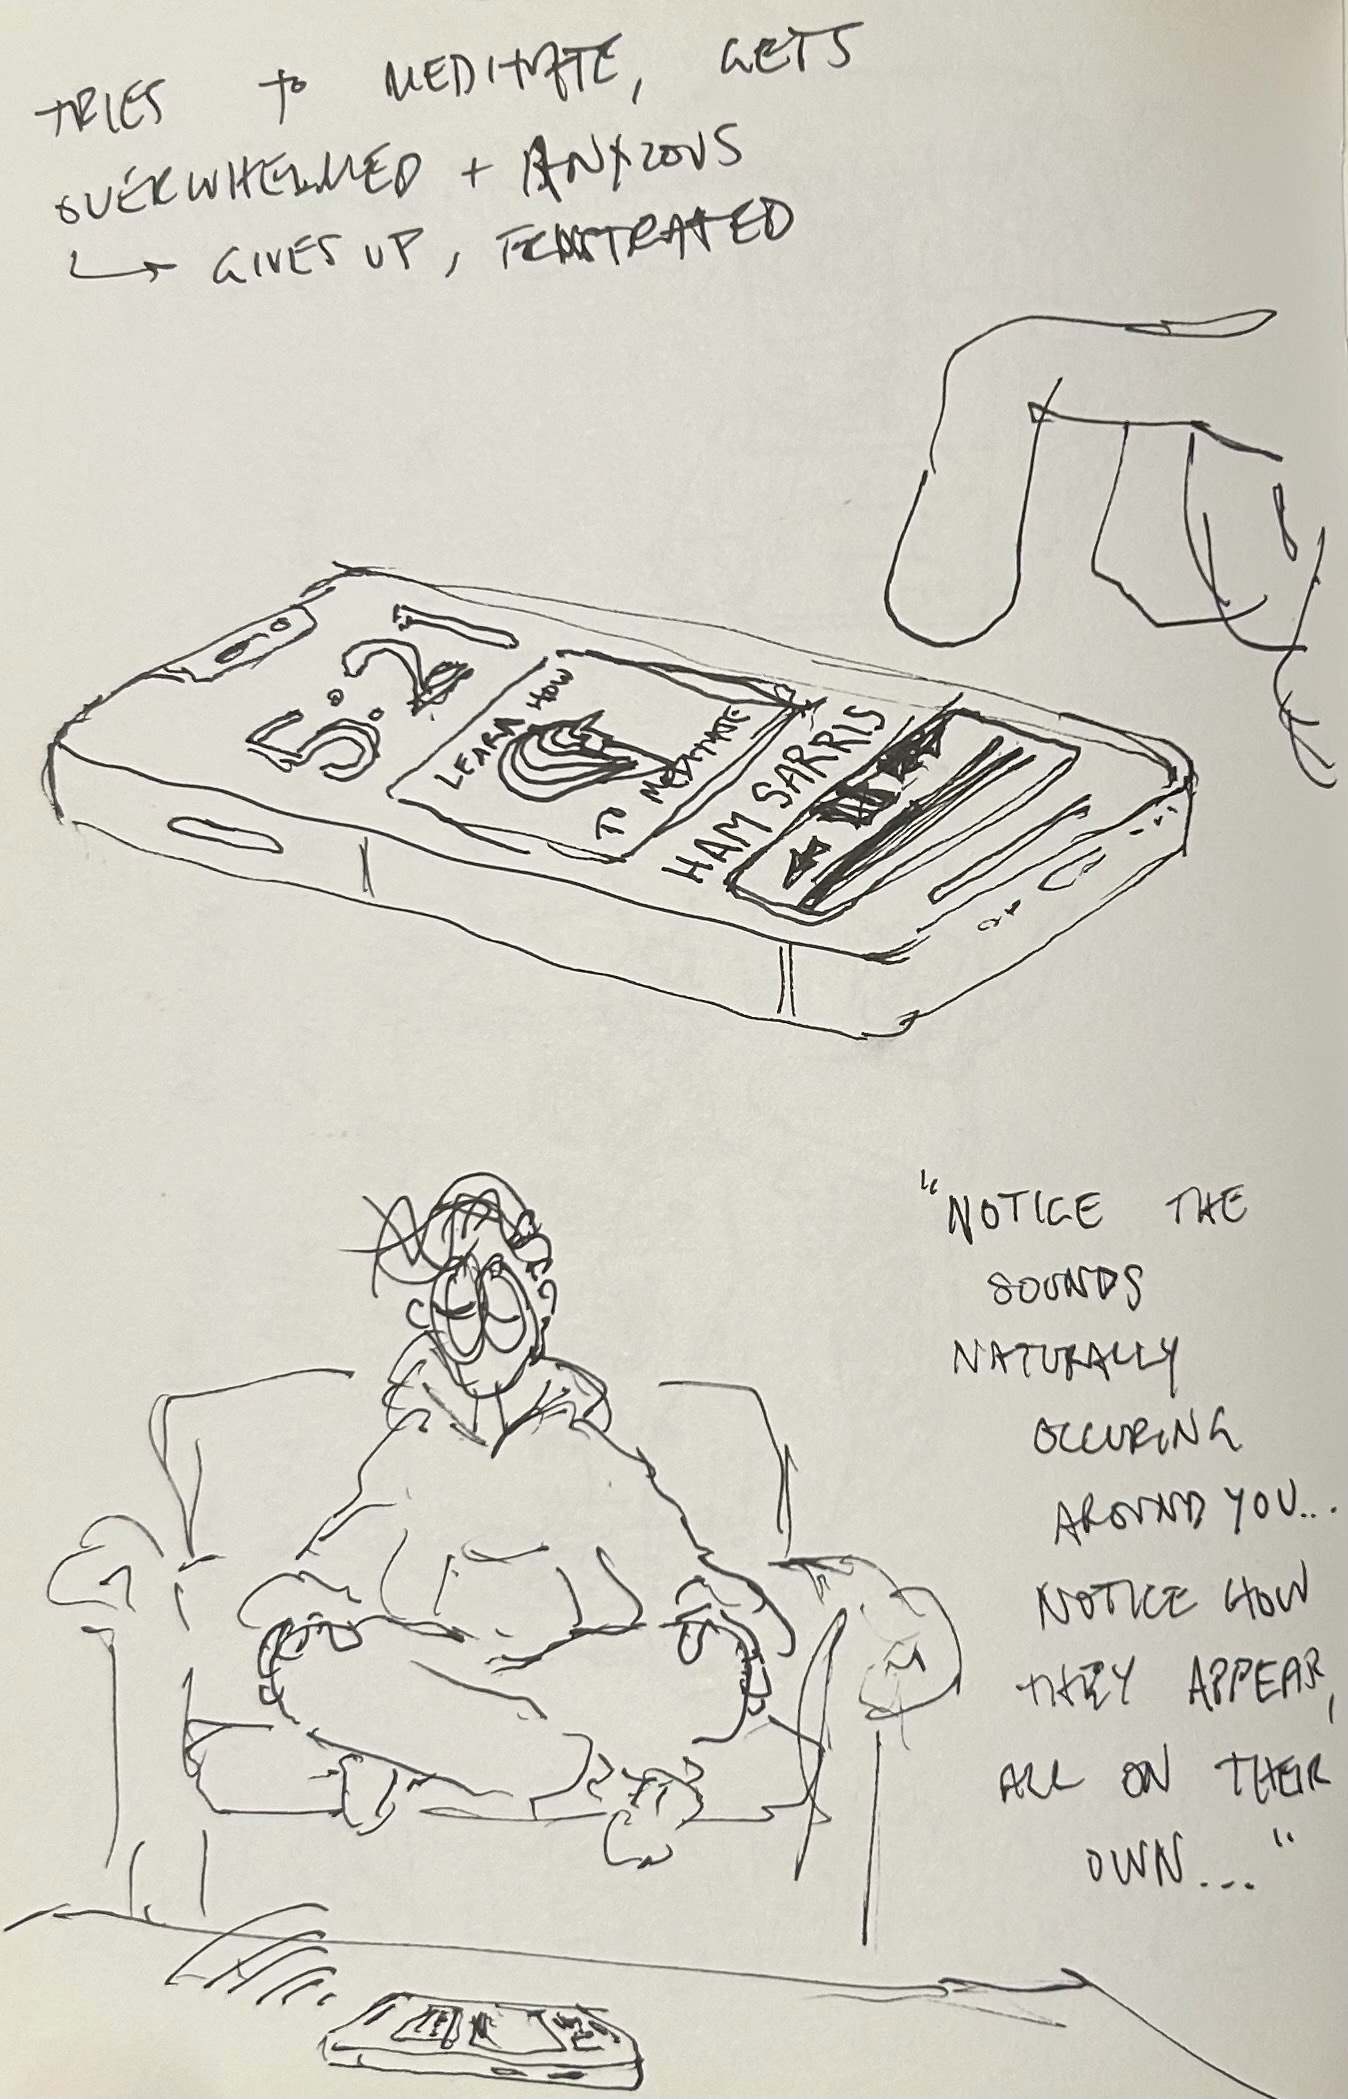 TRIES TO MEDITATE, GETS
OVERWHELMED + ANXIOUS
↳ GIVES UP, FRUSTRATED
5:21
LEARN HOW
TO MEDITATE
HAM SARRIS
"NOTICE THE
SOUNDS
NATURALLY
OCCURING
AROUND YOU...
NOTICE HOW
THEY APPEAR,
ALL ON THEIR
OWN..."